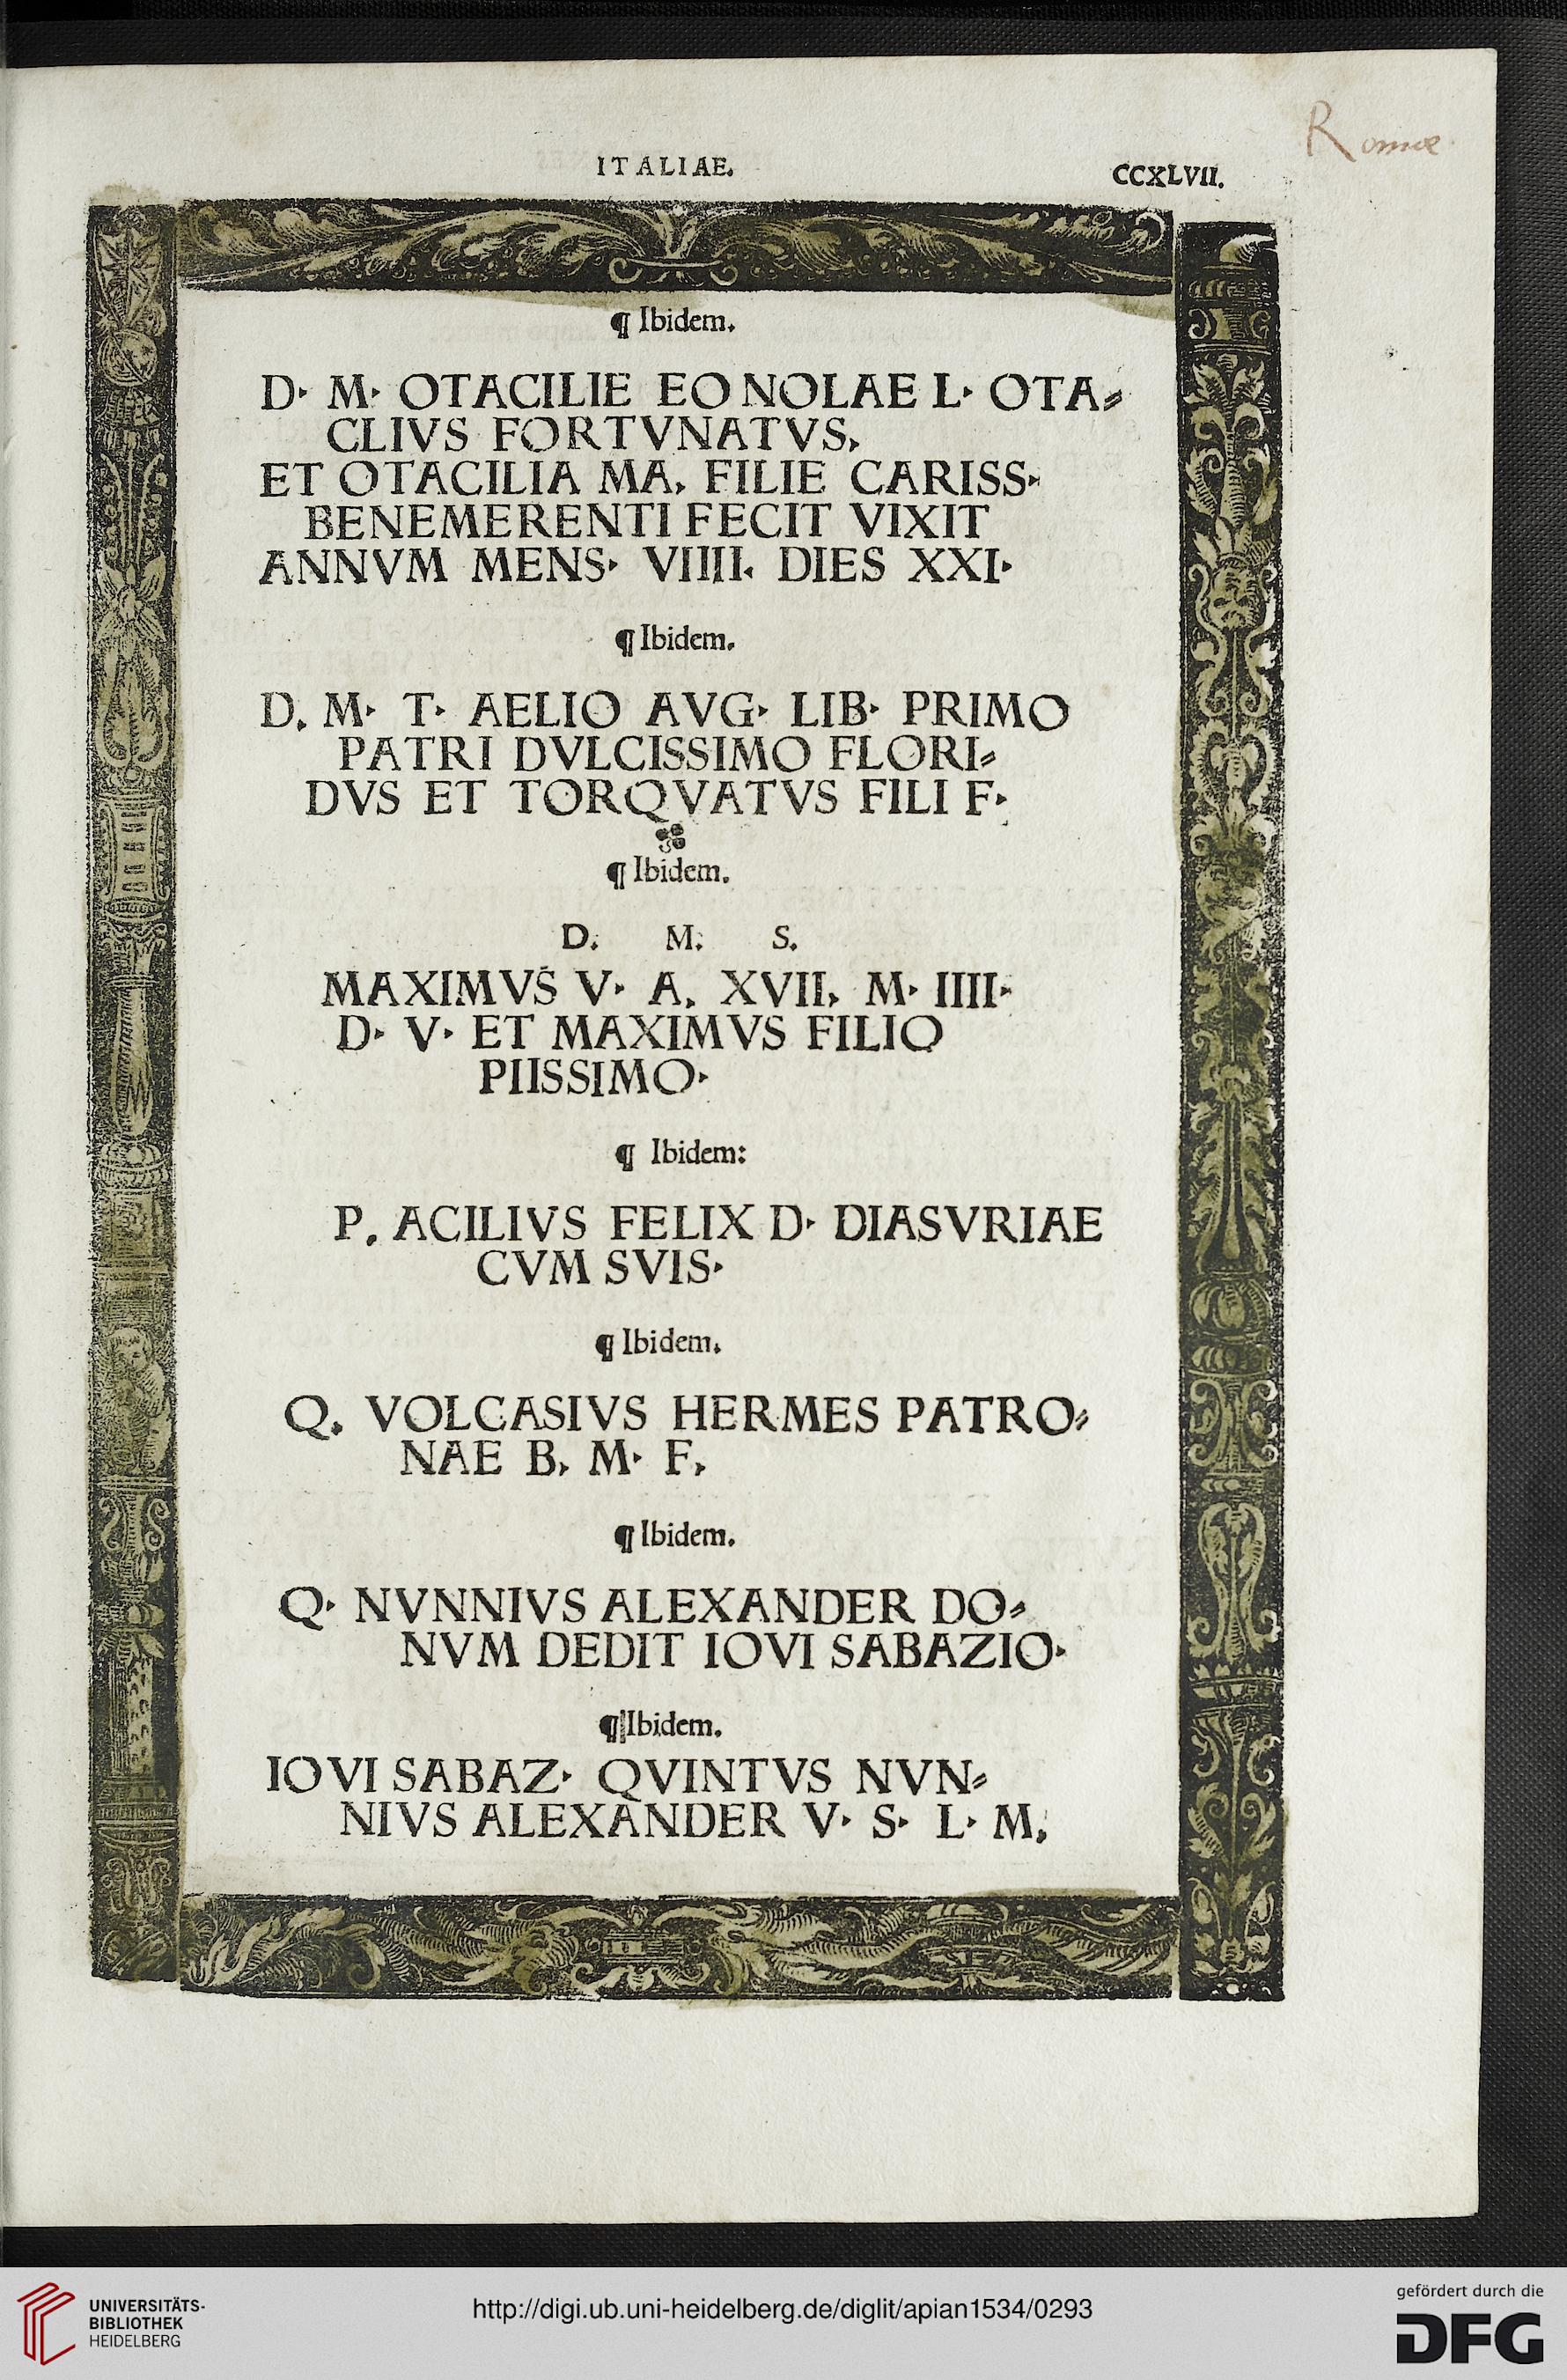 Romæ
ITALIAE.
CCXLVII.
¶ Ibidem.
D· M· OTACILIE EO NOLAE L· OTA⸗
CLIVS FORTVNATVS,
ET OTACILIA MA, FILIE CARISS·
BENEMERENTI FECIT VIXIT
ANNVM MENS· VIIII. DIES XXI·
¶ Ibidem.
D. M· T· AELIO AVG· LIB· PRIMO
PATRI DVLCISSIMO FLORI⸗
DVS ET TORQVATVS FILI F·
¶ Ibidem.
D. M: S.
MAXIMVS V· A, XVII, M· IIII·
D· V· ET MAXIMVS FILIO
PIISSIMO·
¶ Ibidem:
P. ACILIVS FELIX D· DIASVRIAE
CVM SVIS·
¶ Ibidem.
Q. VOLCASIVS HERMES PATRO⸗
NAE B, M· F,
¶ Ibidem.
Q· NVNNIVS ALEXANDER DO⸗
NVM DEDIT IOVI SABAZIO·
¶ Ibidem.
IOVI SABAZ· QVINTVS NVN⸗
NIVS ALEXANDER V· S· L· M,
UNIVERSITÄTS-
BIBLIOTHEK
HEIDELBERG
http://digi.ub.uni-heidelberg.de/diglit/apian1534/0293
gefördert durch die
DFG